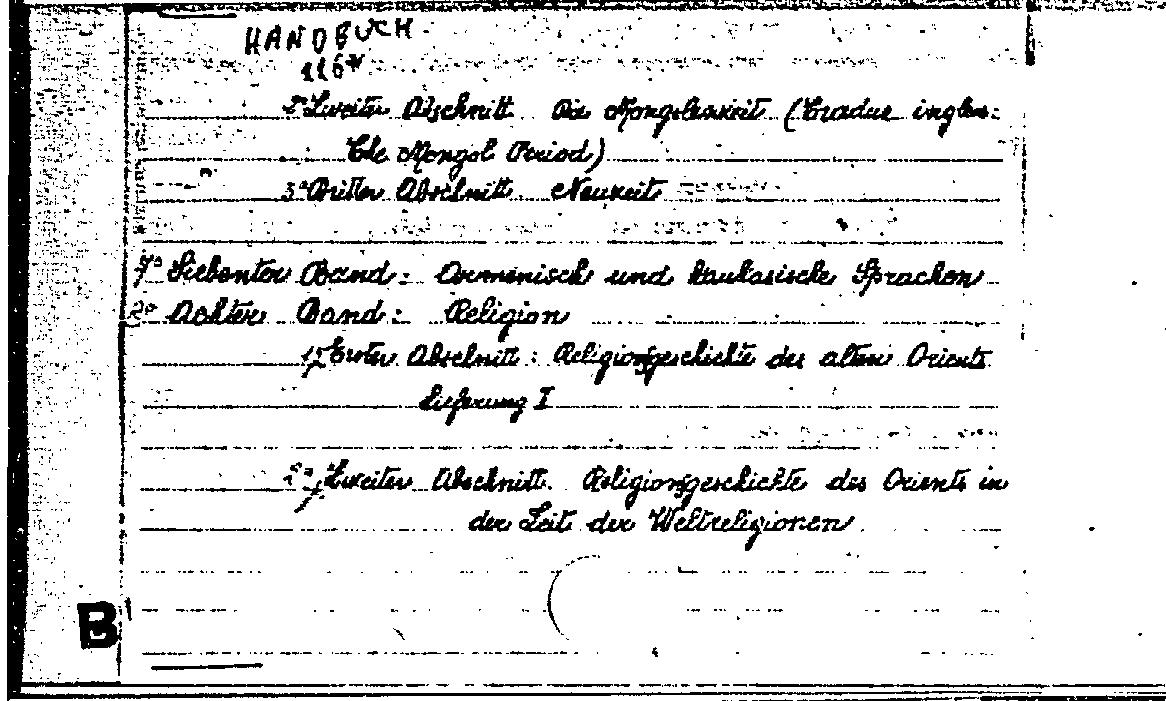 HANDBUCH
116*
2º Zweiter Abschnitt Die Mongolenzeit (Tradue ingles:
The Mongol Period)
3º Dritter Abschnitt Neuzeit
7º Siebenter Band: Armenisch und kaukasische Sprachen
8º Achter Band: Religion
1º Erster Abschnitt: Religionsgeschichte des alten Orients
Lieferung I
2º Zweiter Abschnitt. Religionsgeschichte des Orients in
der Zeit der Weltreligionen
B